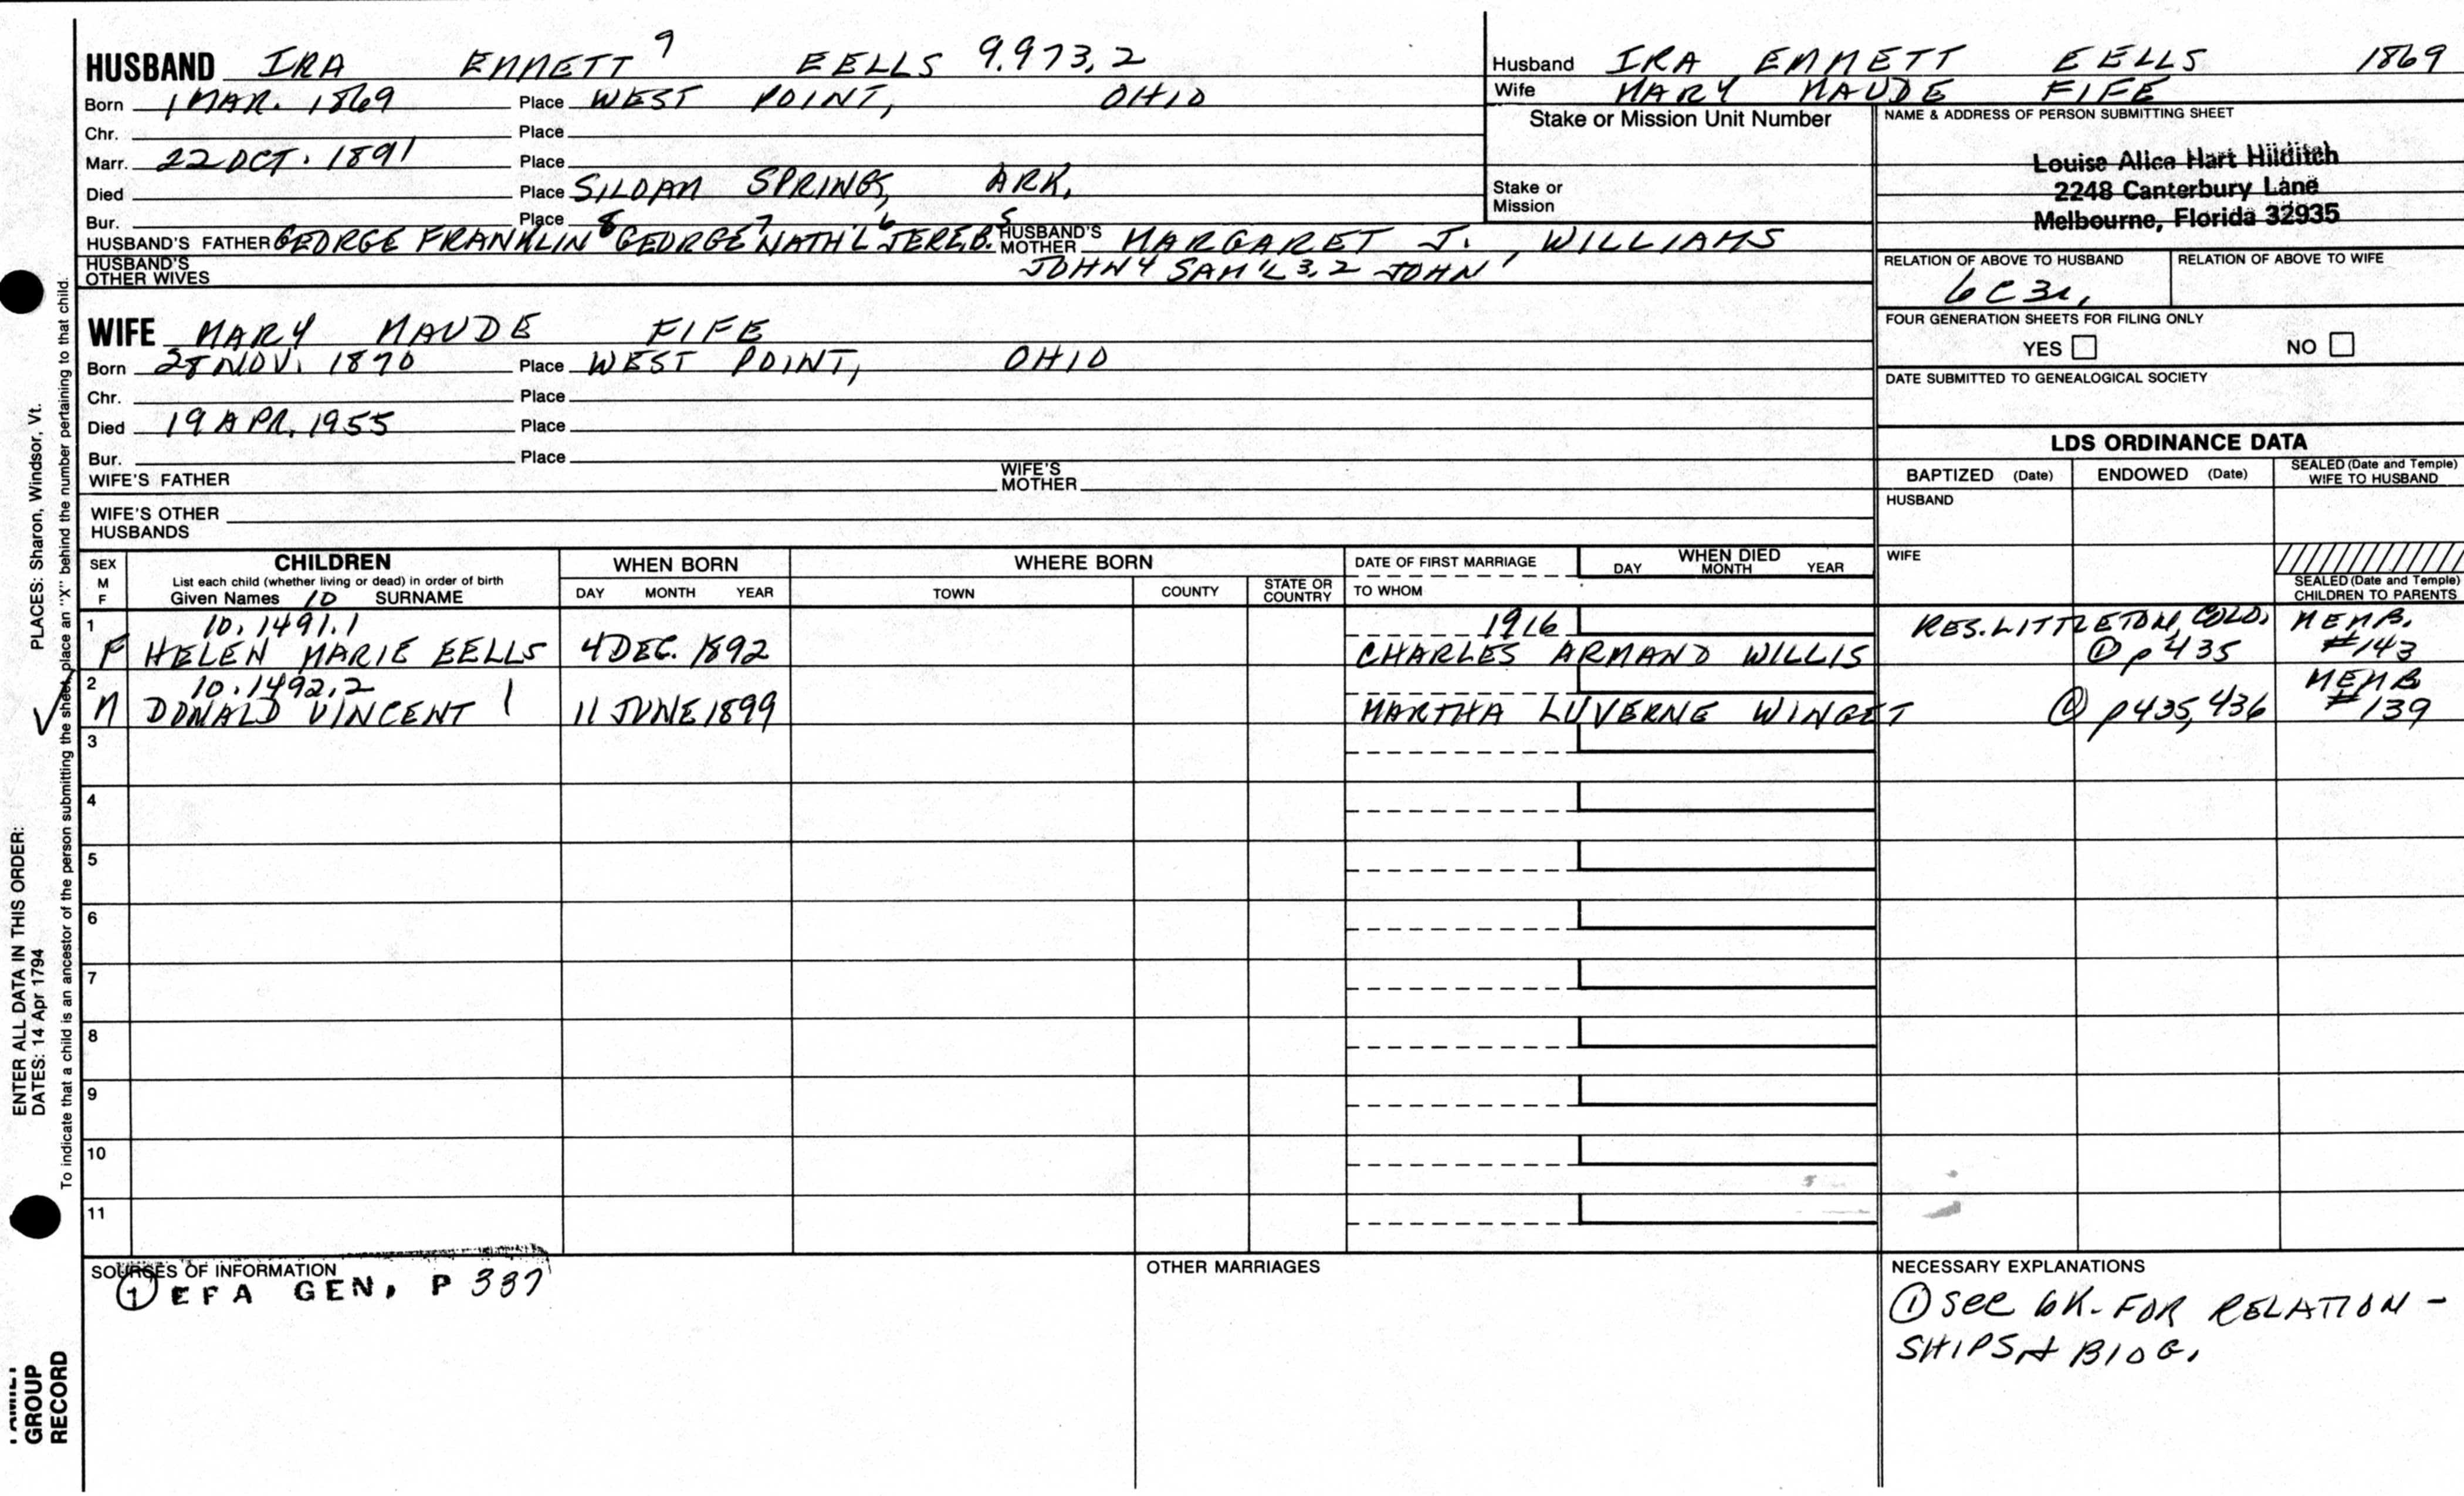 HUSBAND IRA EMMETT 9 EELLS 9.973,2
Born 1 MAR. 1869 Place WEST POINT, OHIO
Chr. Place
Marr. 22 OCT. 1891 Place
Died Place SILOAM SPRINGS, ARK.
Bur. Place
HUSBAND'S FATHER GEORGE FRANKLIN 8 GEORGE 7 NATH'L 6 JERE.B. 5 HUSBAND'S MOTHER MARGARET J. WILLIAMS
HUSBAND'S OTHER WIVES JOHN 4 SAM'L 3,2 JOHN 1
Husband IRA EMMETT EELLS 1869
Wife MARY MAUDE FIFE
Stake or Mission Unit Number
Stake or Mission
NAME & ADDRESS OF PERSON SUBMITTING SHEET
Louise Alice Hart Hilditch
2248 Canterbury Lane
Melbourne, Florida 32935
RELATION OF ABOVE TO HUSBAND RELATION OF ABOVE TO WIFE
6C3r.
FOUR GENERATION SHEETS FOR FILING ONLY
YES NO
DATE SUBMITTED TO GENEALOGICAL SOCIETY
WIFE MARY MAUDE FIFE
Born 28 NOV. 1870 Place WEST POINT, OHIO
Chr. Place
Died 19 APR. 1955 Place
Bur. Place
WIFE'S FATHER WIFE'S MOTHER
WIFE'S OTHER HUSBANDS
LDS ORDINANCE DATA
BAPTIZED (Date) ENDOWED (Date) SEALED (Date and Temple) WIFE TO HUSBAND
HUSBAND
WIFE
SEALED (Date and Temple) CHILDREN TO PARENTS
SEX M F
CHILDREN
List each child (whether living or dead) in order of birth
Given Names 10 SURNAME
WHEN BORN
DAY MONTH YEAR
WHERE BORN
TOWN COUNTY STATE OR COUNTRY
DATE OF FIRST MARRIAGE
TO WHOM
WHEN DIED
DAY MONTH YEAR
1 10.1491.1 1916 RES. LITTLETON, COLO. MEMB.
F HELEN MARIE EELLS 4 DEC. 1892 CHARLES ARMAND WILLIS ① p 435 #143
2 10.1492,2 MEMB
M DONALD VINCENT 11 JUNE 1899 MARTHA LUVERNE WINGET ① p435,436 #139
3
4
5
6
7
8
9
10
11
SOURCES OF INFORMATION
① EFA GEN, P 337
OTHER MARRIAGES
NECESSARY EXPLANATIONS
① SEE 6K. FOR RELATION-
SHIPS & BIOG.
ENTER ALL DATA IN THIS ORDER:
DATES: 14 Apr 1794
PLACES: Sharon, Windsor, Vt.
To indicate that a child is an ancestor of the person submitting the sheet, place an "X" behind the number pertaining to that child.
GROUP
RECORD